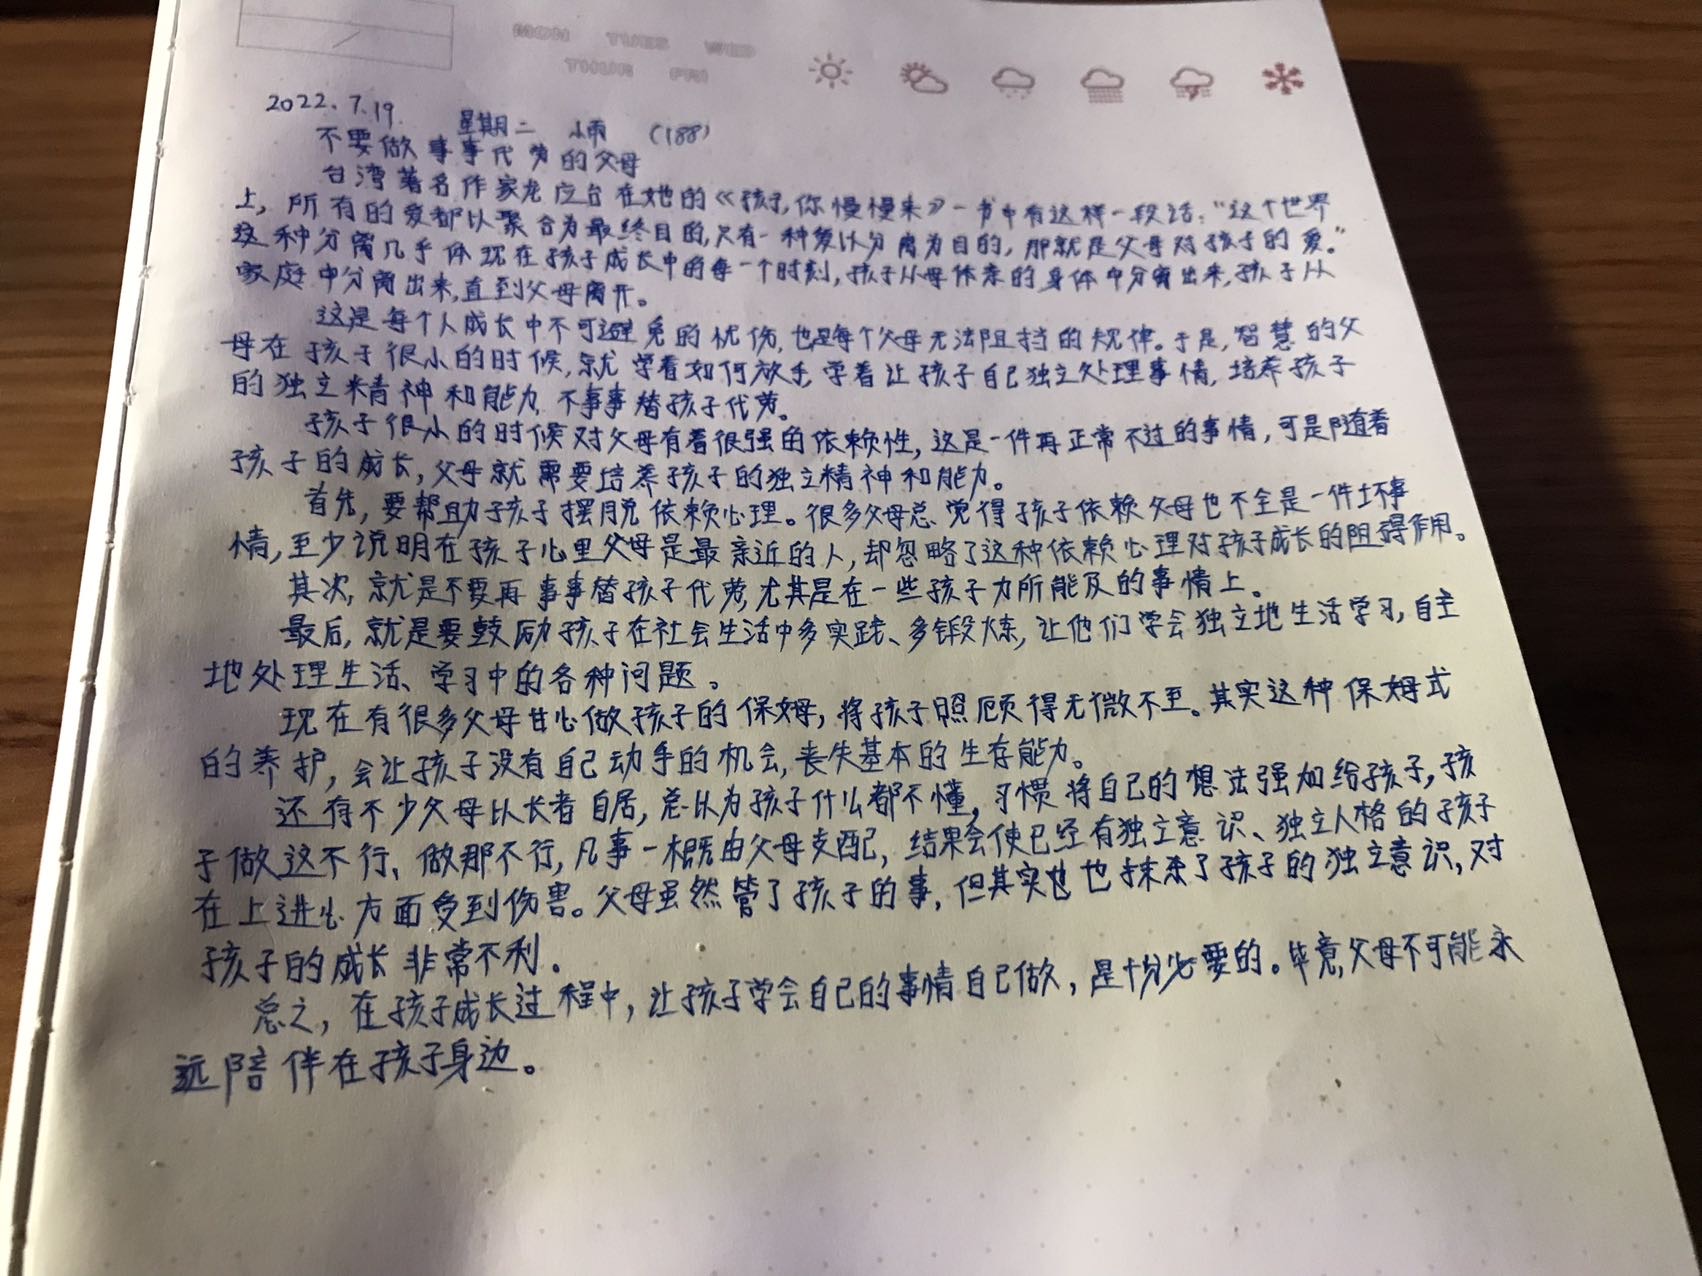 MON TUES WED
THUR FRI
2022.7.19 星期二 小雨 (188)
不要做事事代劳的父母
台湾著名作家龙应台在她的《孩子,你慢慢来》一书中有这样一段话:“这个世界
上,所有的爱都以聚合为最终目的,只有一种爱以分离为目的,那就是父母对孩子的爱。”
这种分离几乎体现在孩子成长中的每一个时刻,孩子从母体亲的身体中分离出来,孩子从
家庭中分离出来,直到父母离开。
这是每个人成长中不可避免的忧伤,也是每个父母无法阻挡的规律。于是,智慧的父
母在孩子很小的时候,就学着如何放手,学着让孩子自己独立处理事情,培养孩子
的独立精神和能力,不事事替孩子代劳。
孩子很小的时候对父母有着很强的依赖性,这是一件再正常不过的事情,可是随着
孩子的成长,父母就需要培养孩子的独立精神和能力。
首先,要帮助孩子摆脱依赖心理。很多父母总觉得孩子依赖父母也不全是一件坏事
情,至少说明在孩子心里父母是最亲近的人,却忽略了这种依赖心理对孩子成长的阻碍作用。
其次,就是不要再事事替孩子代劳,尤其是在一些孩子力所能及的事情上。
最后,就是要鼓励孩子在社会生活中多实践、多锻炼,让他们学会独立地生活学习,自主
地处理生活、学习中的各种问题。
现在有很多父母甘心做孩子的保姆,将孩子照顾得无微不至。其实这种保姆式
的养护,会让孩子没有自己动手的机会,丧失基本的生存能力。
还有不少父母以长者自居,总认为孩子什么都不懂,习惯将自己的想法强加给孩子,孩
子做这不行、做那不行,凡事一概由父母支配,结果会使已经有独立意识、独立人格的孩子
在上进心方面受到伤害。父母虽然管了孩子的事,但其实也也抹杀了孩子的独立意识,对
孩子的成长非常不利。
总之,在孩子成长过程中,让孩子学会自己的事情自己做,是十分必要的。毕竟,父母不可能永
远陪伴在孩子身边。